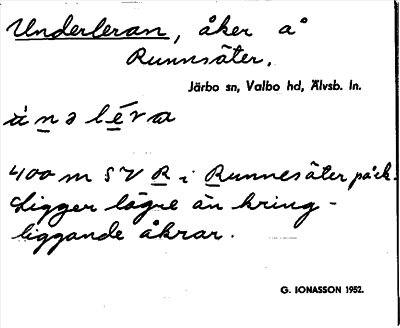 Underleran, åker å
Runnsäter.
Järbo sn, Valbo hd, Älvsb. ln.
400 m SV R i Runnesäter på ek.
Ligger lägre än kring-
liggande åkrar.
G. IONASSON 1952.